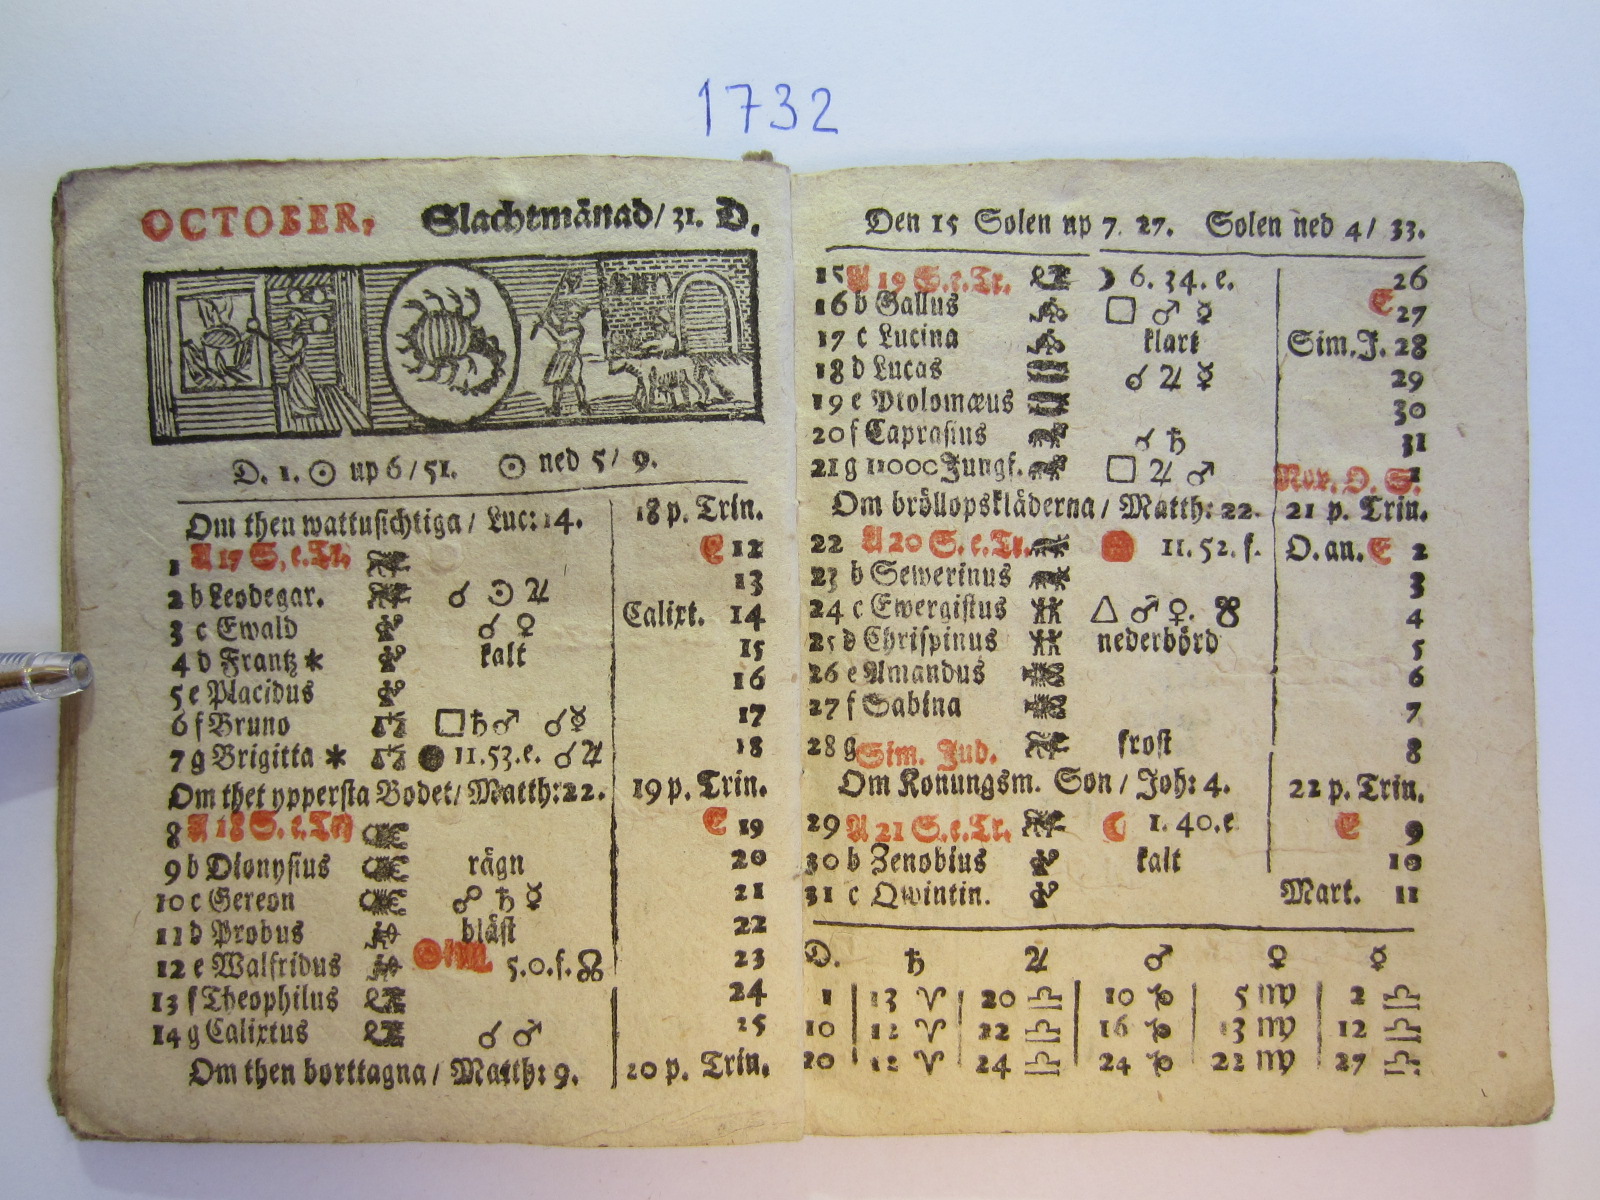 1732
OCTOBER, Slachtmånad/ 31. D.
D. 1. ☉ up 6/ 51. ☉ ned 5/ 9.
Om then wattusichtiga/ Luc: 14. 18 p. Trin.
1 A 17 S. e. Tr. E 12
2 b Leodegar. ☌ ☉ ♃ 13
3 c Ewald ☌ ♀ Calixt. 14
4 d Frantz * kalt 15
5 e Placidus 16
6 f Bruno □ ♄ ♂ ☌ ☿ 17
7 g Brigitta * ● 11. 53. e. ☌ ♃ 18
Om thet yppersta Bodet/ Matth: 22. 19 p. Trin.
8 A 18 S. e. Tr. E 19
9 b Dionysius rägn 20
10 c Gereon ☍ ♄ ☿ 21
11 d Probus bläst 22
12 e Walfridus 5. 0. f. ☊ 23
13 f Theophilus 24
14 g Calixtus ☌ ♂ 25
Om then borttagna/ Matth: 9. 20 p. Trin.
Den 15 Solen up 7. 27. Solen ned 4/ 33.
15 A 19 S. e. Tr. ☽ 6. 34. e. 26
16 b Gallus □ ♂ ☿ E 27
17 c Lucina klart Sim. J. 28
18 d Lucas ☌ ♃ ☿ 29
19 e Ptolomæus 30
20 f Caprasius ☌ ♄ 31
21 g 11000 Jungf. □ ♃ ♂ Nov. O. S. 1
Om bröllopskläderna/ Matth: 22. 21 p. Trin.
22 A 20 S. e. Tr. 11. 52. f. O. an. E 2
23 b Sewerinus 3
24 c Ewergistus △ ♂ ♀. ☋ 4
25 d Chrispinus nederbörd 5
26 e Amandus 6
27 f Sabina 7
28 g Sim. Jud. frost 8
Om Konungsm. Son/ Joh: 4. 22 p. Trin.
29 A 21 S. e. Tr. ☾ 1. 40. e E 9
30 b Zenobius kalt 10
31 c Qwintin. Mart. 11
D. ♄ ♃ ♂ ♀ ☿
1 13 ♈ 20 ♎ 10 ♑ 5 ♍ 2 ♎
10 12 ♈ 22 ♎ 16 ♑ 13 ♍ 12 ♎
20 12 ♈ 24 ♎ 24 ♑ 22 ♍ 27 ♎